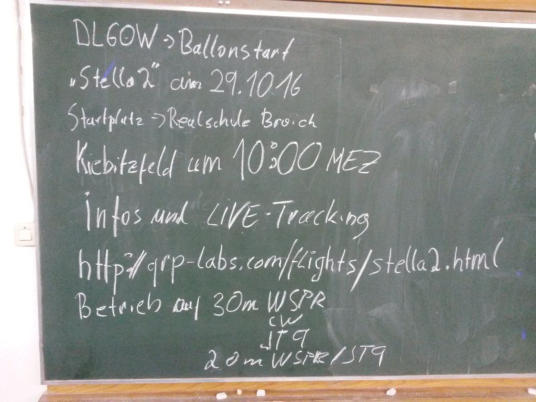 DL6OW → Ballonstart
„Stella2" am 29.10.16
Startplatz → Realschule Broich
Kiebitzfeld um 10:00 MEZ
Infos und LIVE-Tracking
http://qrp-labs.com/flights/stella2.html
Betrieb auf 30m WSPR
CW
JT9
20m WSPR/JT9